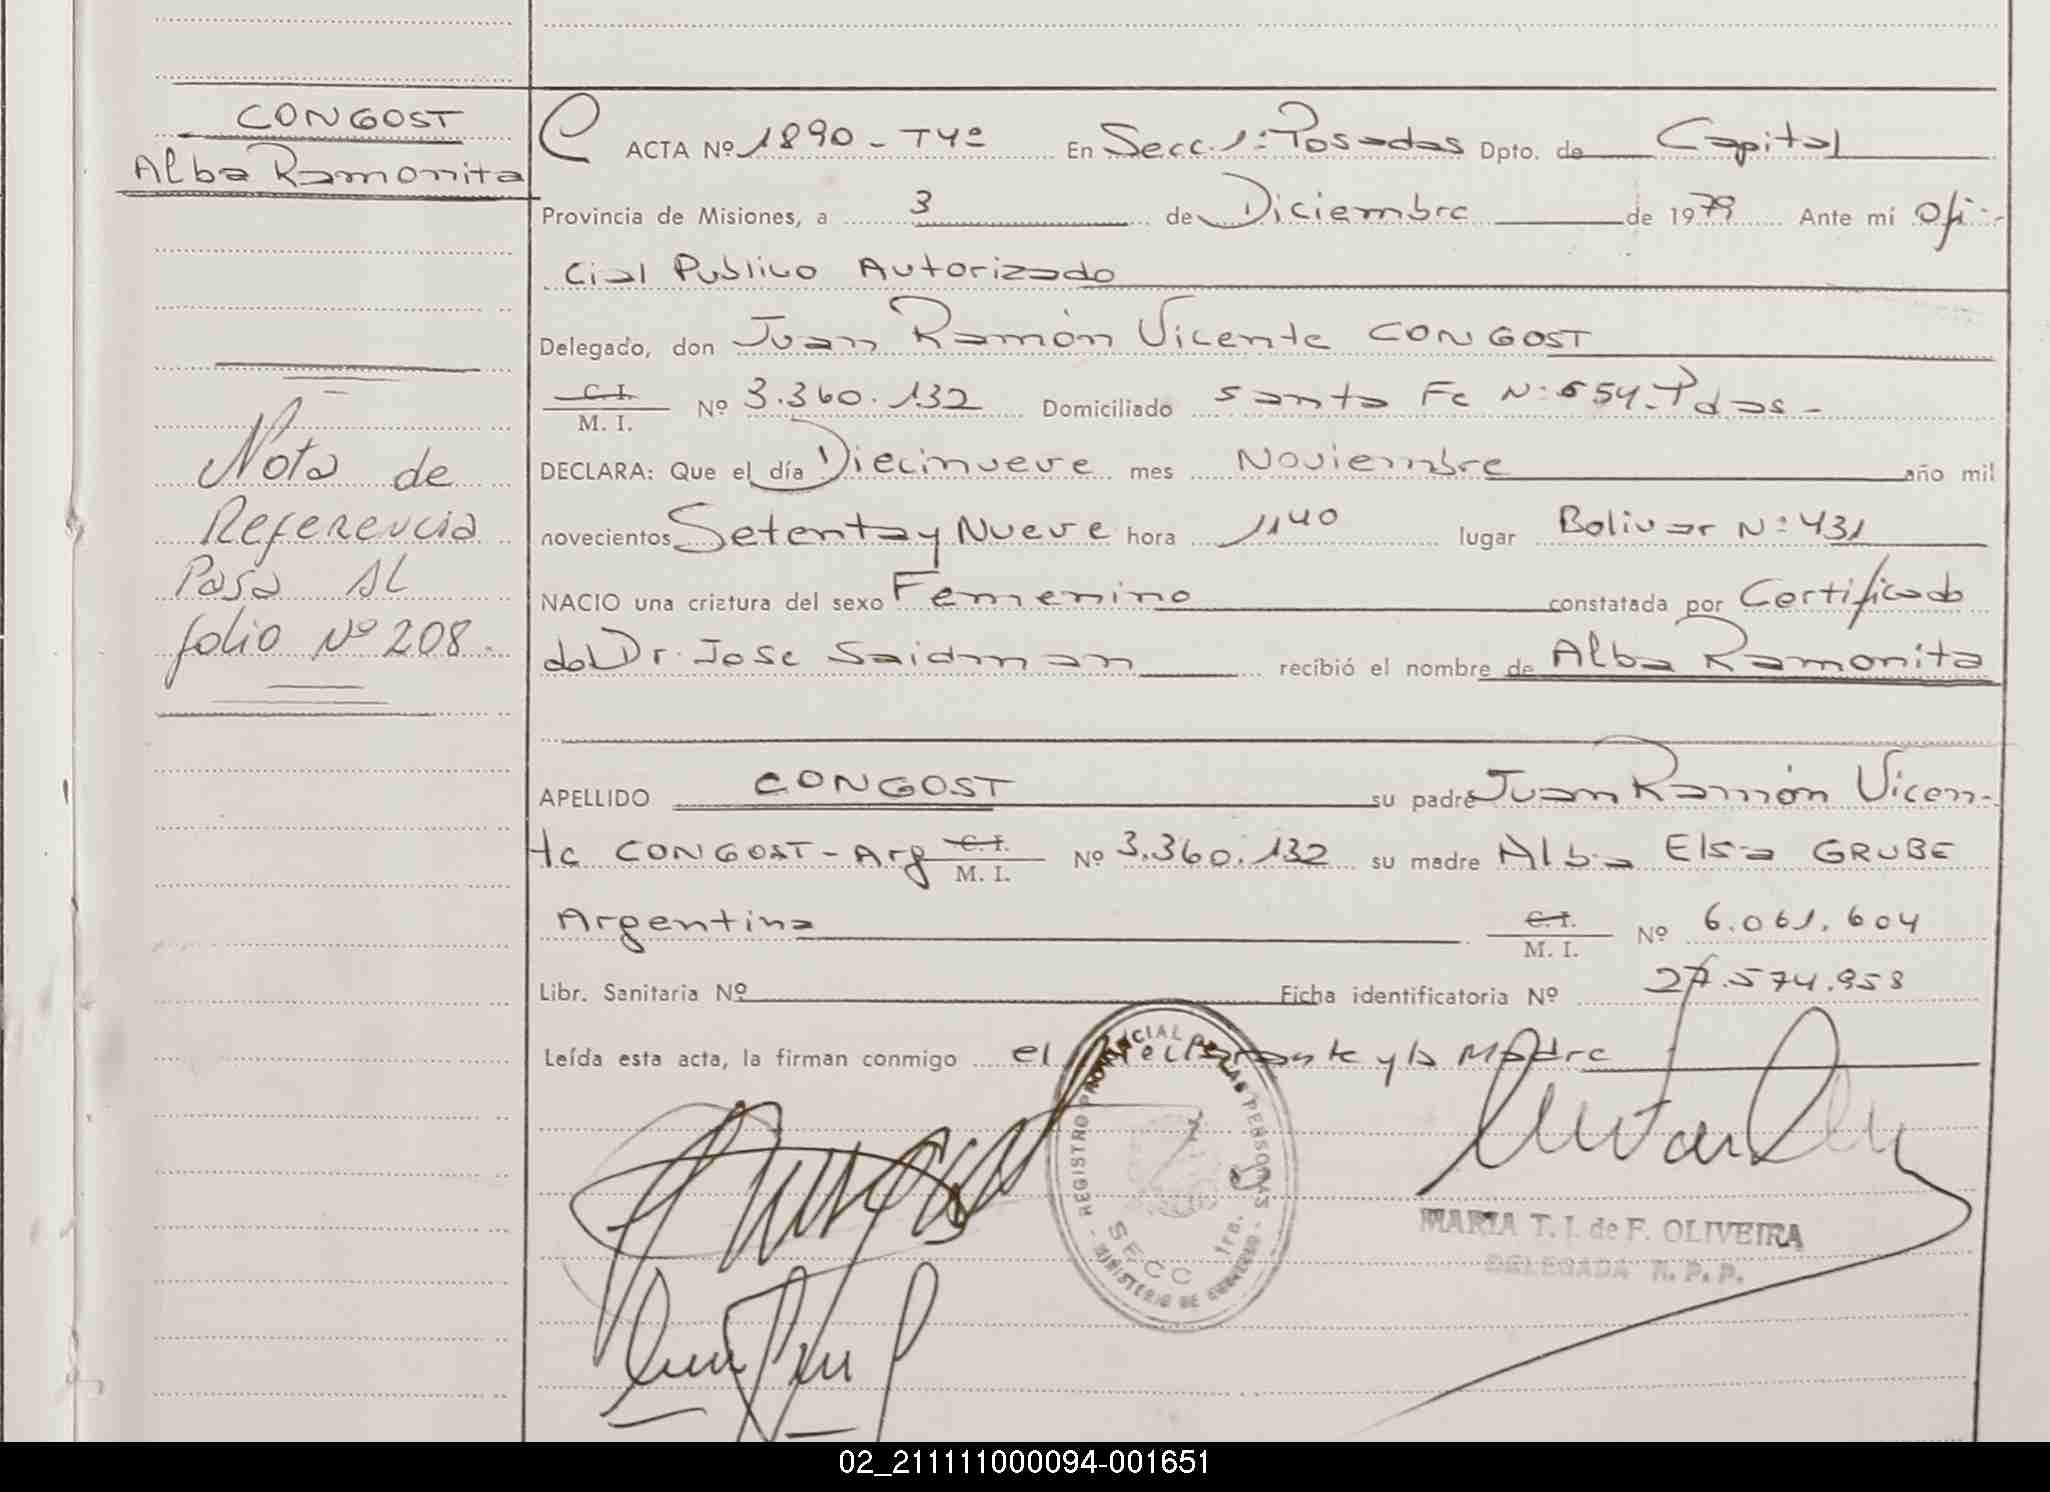 CONGOST
Alba Ramonita
Nota de
Referencia
Pasa al
folio Nº 208.
ACTA Nº 1890 - T4º En Secc. 1ª Posadas Dpto. de Capital
Provincia de Misiones, a 3 de Diciembre de 1979 Ante mí Ofi-
cial Publico Autorizado
Delegado, don Juan Ramón Vicente CONGOST
C. I. / M. I. Nº 3.360.132 Domiciliado Santa Fe Nº 654. Pdas -
DECLARA: Que el día Diecinueve mes Noviembre año mil
novecientos Setenta y Nueve hora 11 40 lugar Bolivar Nº 431
NACIO una criatura del sexo Femenino constatada por Certificado
del Dr. Jose Saidman recibió el nombre de Alba Ramonita
APELLIDO CONGOST su padre Juan Ramón Vicen-
te CONGOST - Arg C. I. / M. I. Nº 3.360.132 su madre Alba Elsa GRUBE
Argentina C. I. / M. I. Nº 6.061.604
Libr. Sanitaria Nº Ficha identificatoria Nº 27.574.958
Leída esta acta, la firman conmigo el declarante y la Madre
REGISTRO PROVINCIAL DE LAS PERSONAS
SECC 1ra.
- MINISTERIO DE GOBIERNO -
MARIA T. J. de F. OLIVEIRA
DELEGADA R. P. P.
02_211111000094-001651